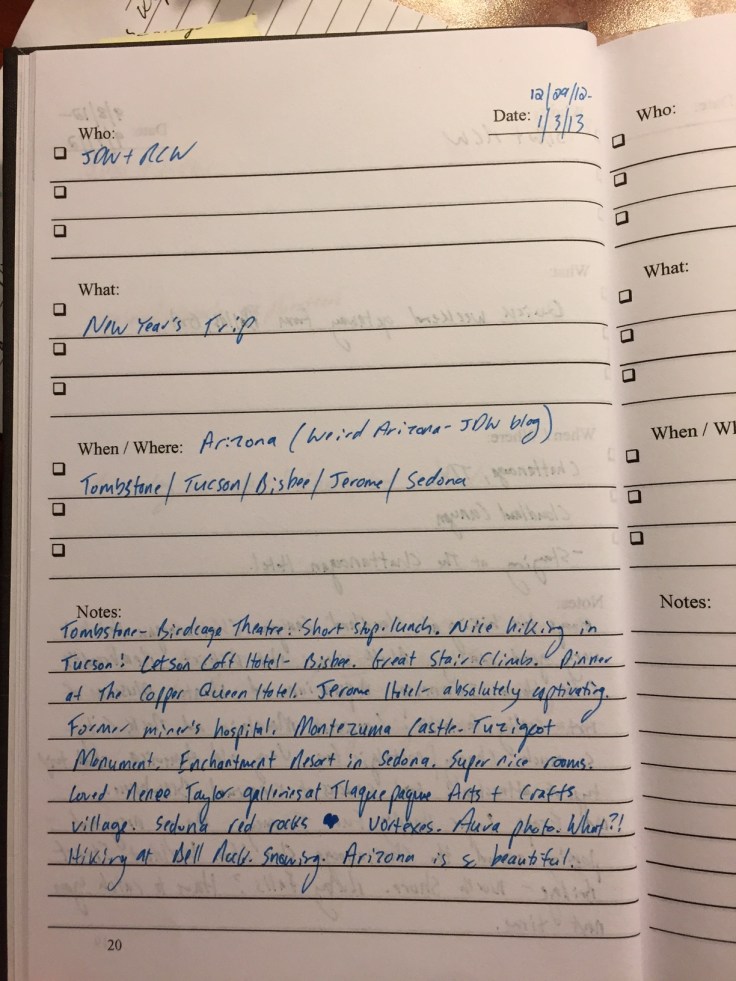 12/29/12-
Date: 1/3/13
Who:
JDW + RCW
What:
New Year's Trip
When / Where: Arizona (Weird Arizona - JDW blog)
Tombstone / Tucson / Bisbee / Jerome / Sedona
Notes:
Tombstone - Birdcage Theatre. Short stop. lunch. Nice hiking in
Tucson! Letson Loft Hotel - Bisbee. Great Stair Climb. Dinner
at The Copper Queen Hotel. Jerome Hotel - absolutely captivating.
Former miner's hospital. Montezuma Castle - Tuzigoot
Monument. Enchantment Resort in Sedona. Super nice rooms.
Loved Renee Taylor galleries at Tlaquepaque Arts + Crafts
village. Sedona red rocks Vortexes. Aura photo. What?!
Hiking at Bell Rock. Snowing. Arizona is so beautiful.
20
Who:
What:
When / Wh
Notes: